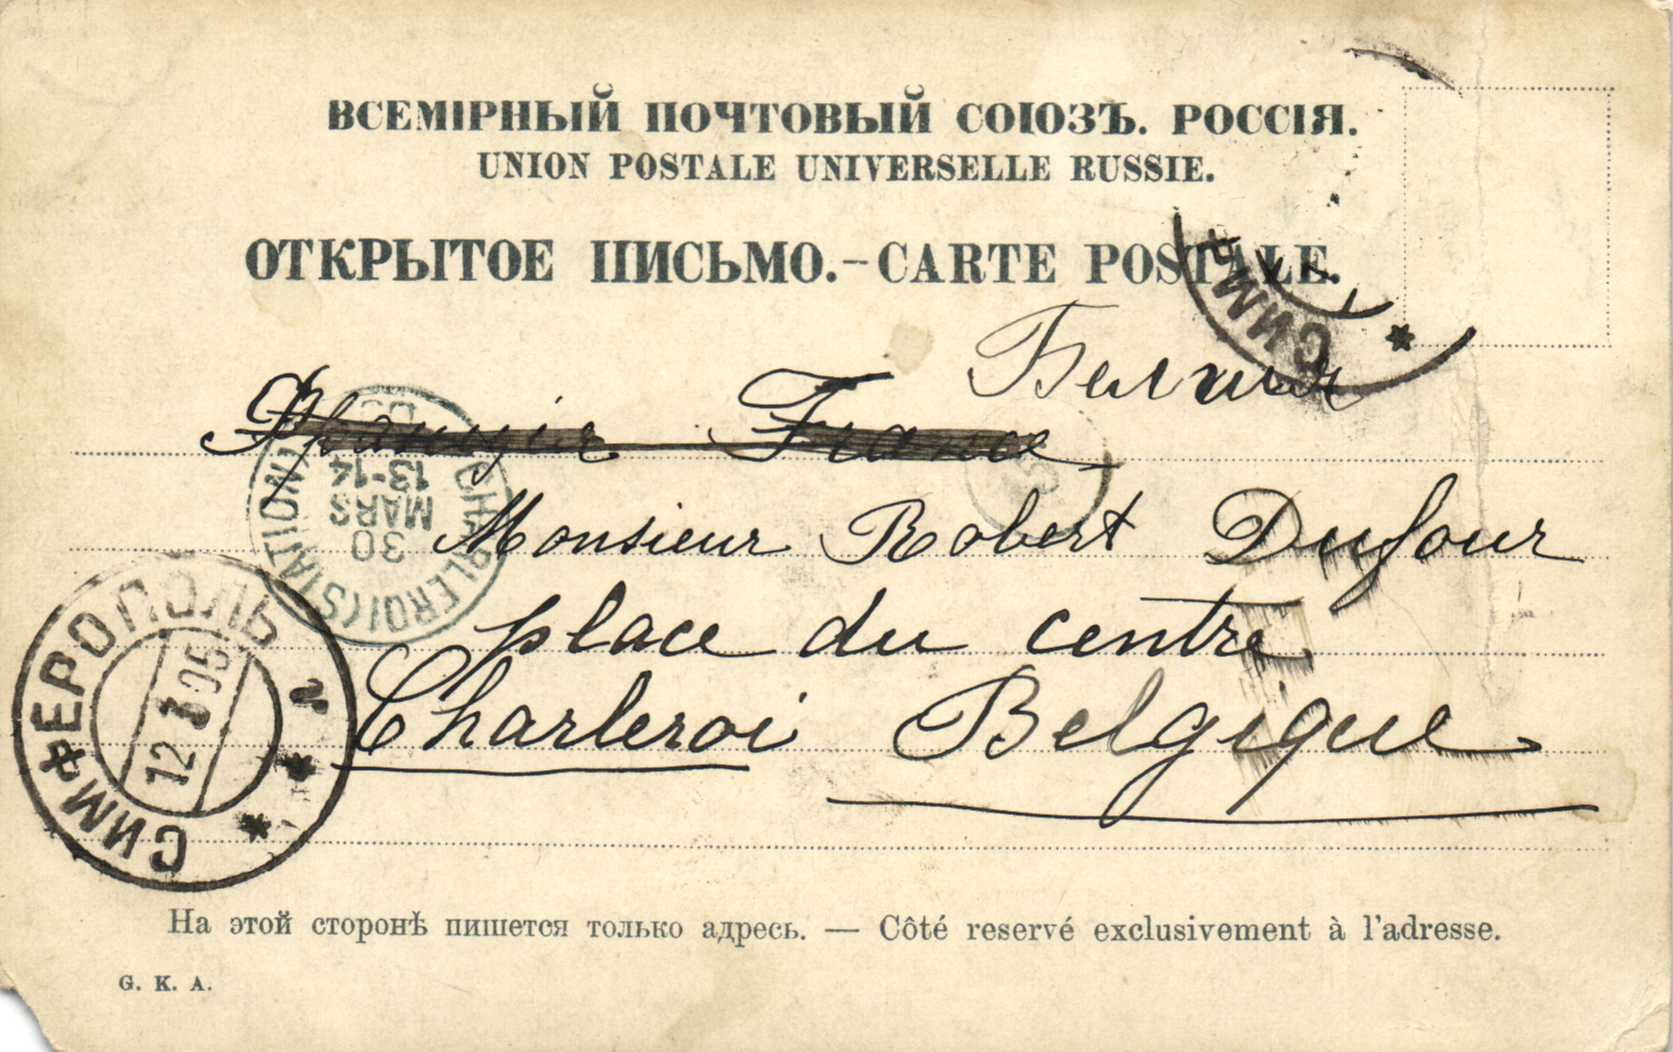 ВСЕМІРНЫЙ ПОЧТОВЫЙ СОЮЗЪ. РОССІЯ.
UNION POSTALE UNIVERSELLE RUSSIE.
ОТКРЫТОЕ ПИСЬМО.-CARTE POSTALE.
СИМФ
Белгия
Франція France
CHARLEROI (STATION)
13-14
MARS
30
Monsieur Robert Dufour
place du centre
Charleroi Belgique
СИМФЕРОПОЛЬ
12 3 05
На этой сторонѣ пишется только адресь. — Côté reservé exclusivement à l'adresse.
G. K. A.